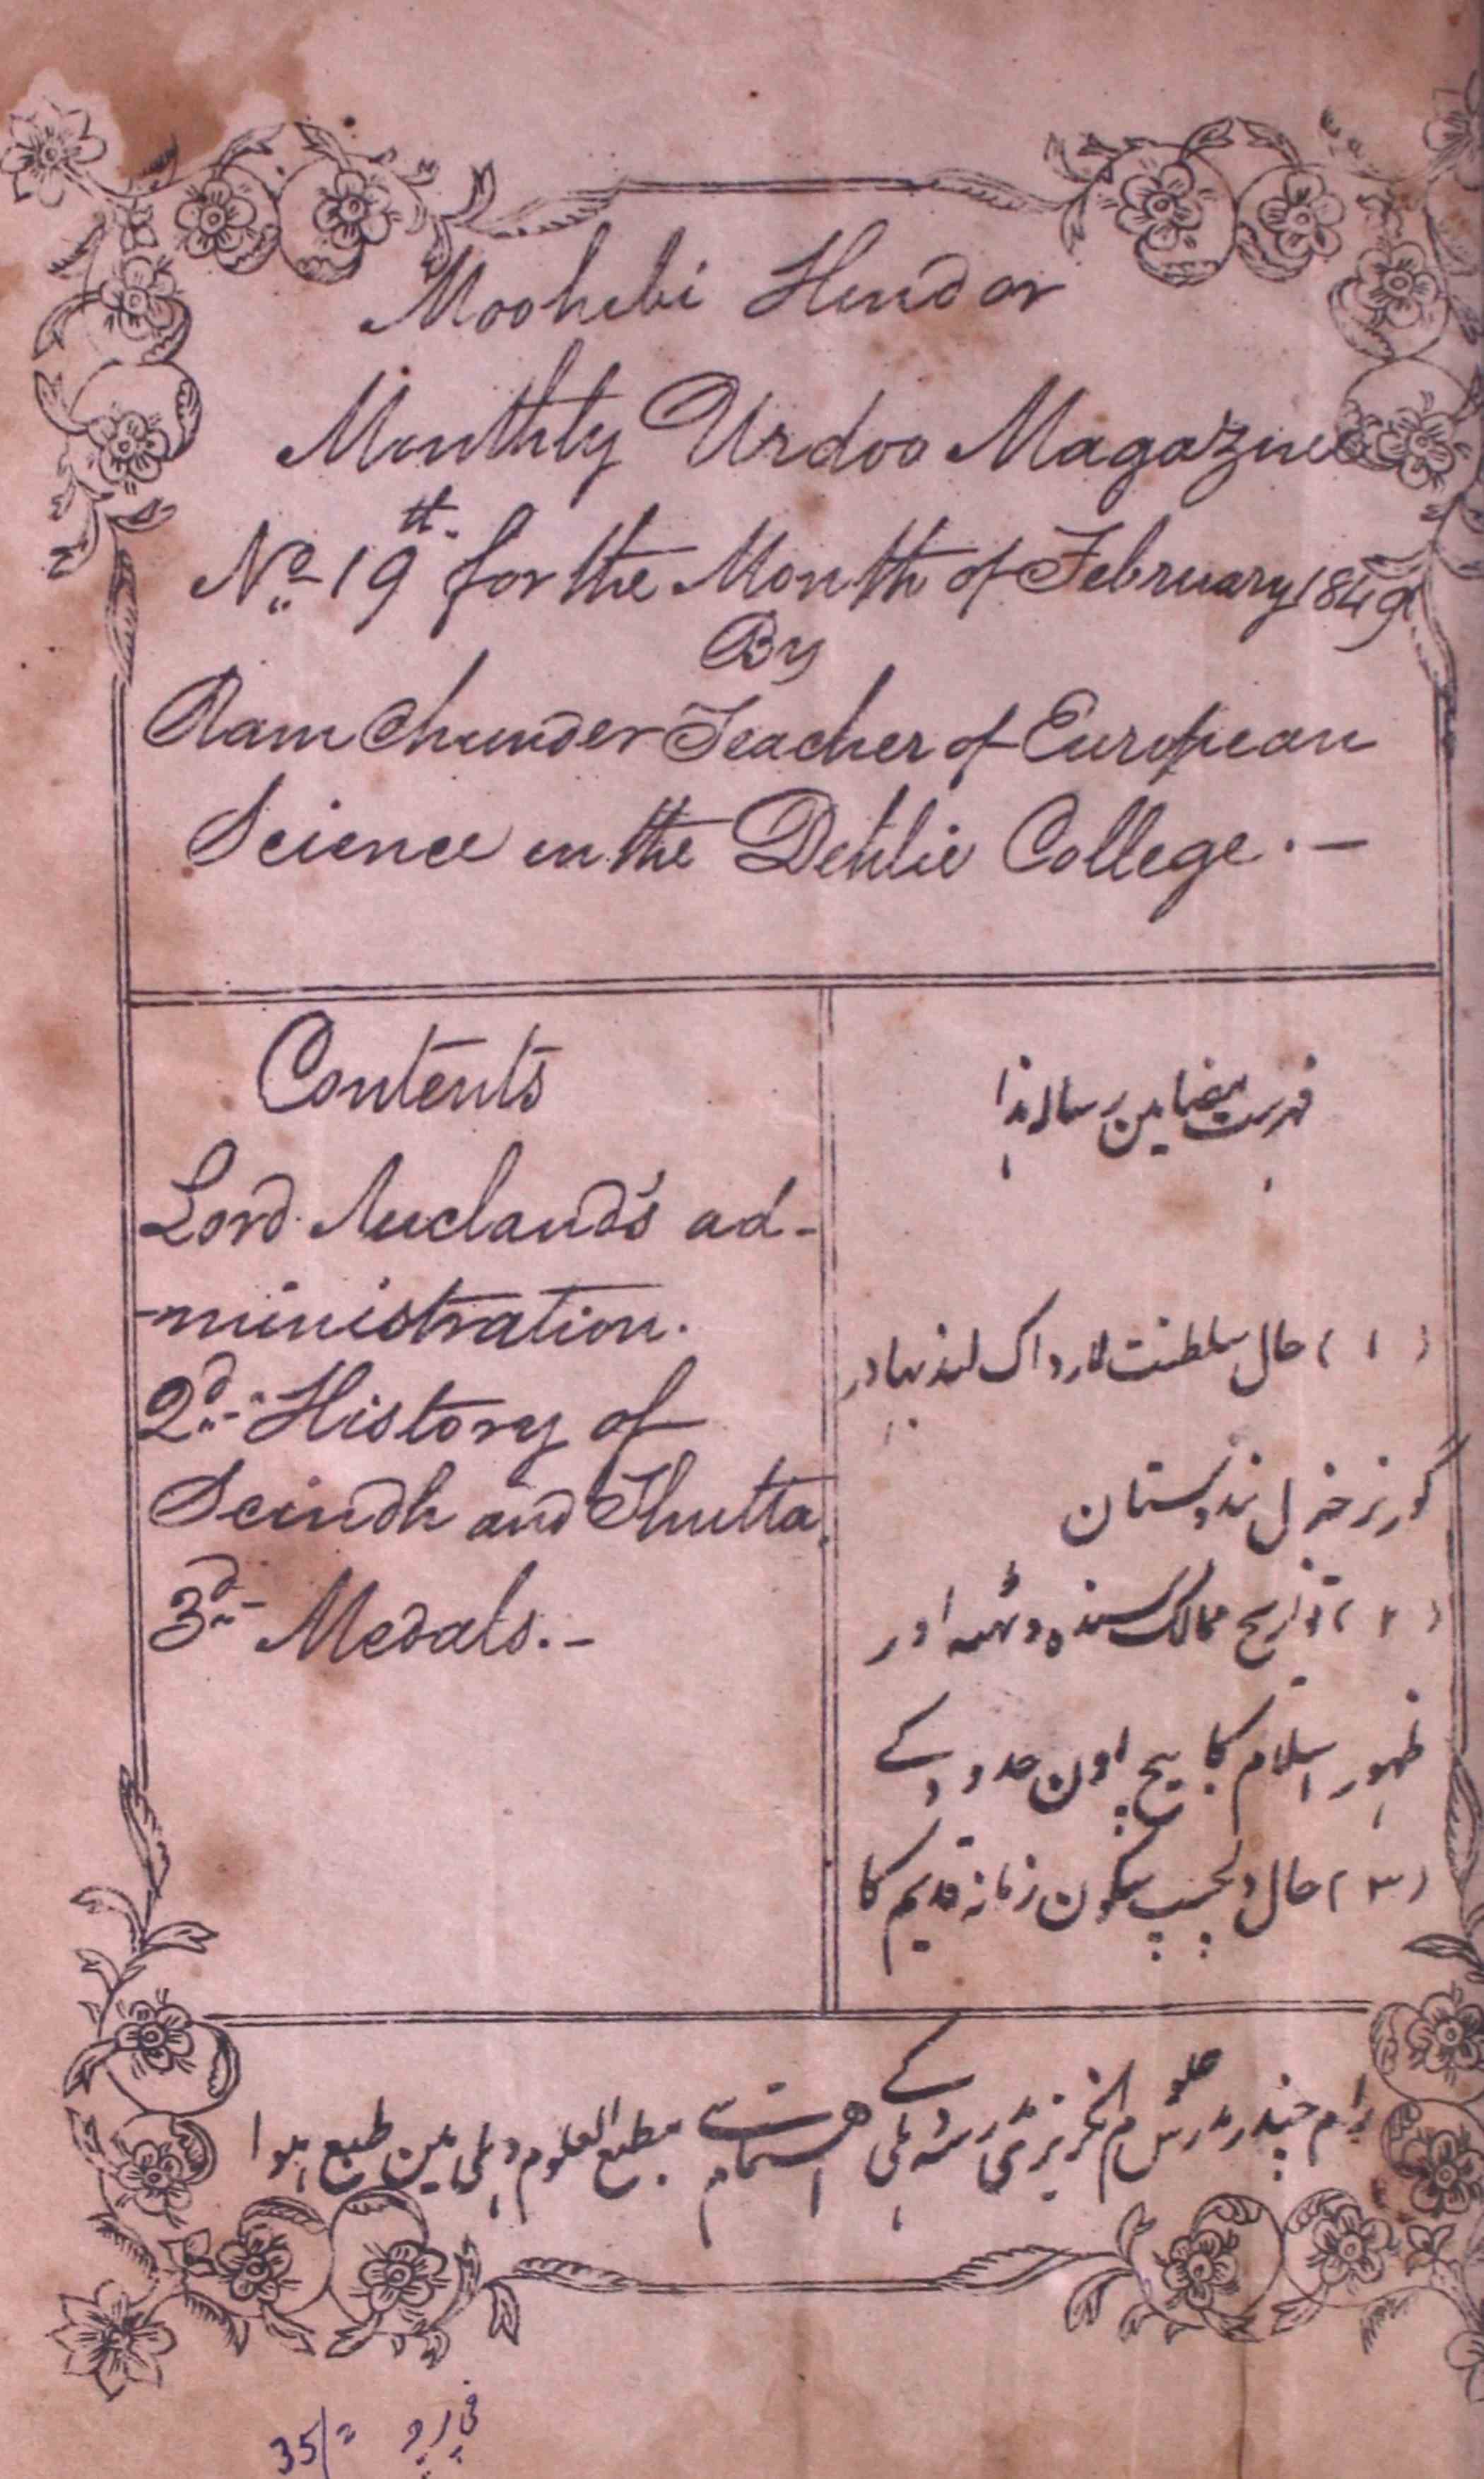 Moohebi Hind or
Monthly Urdoo Magazine
No 19th for the Month of February 1849
By
Ram Chunder Teacher of European
Science in the Dehlie College.—
Contents
Lord Auckland's ad-
-ministration.
2d History of
Scindh and Thutta.
3d Medals.—
فہرست مضامین رسالہ ہذا
(۱) حال سلطنت لارد اک لند بہادر
گورنر جنرل ہندوستان
(۲) تواریخ ممالک سندہ و ٹھٹہ اور
ظہور اسلام کا بیچ اون حدود کے
(۳) حال دلچسپ سکون زمانہ قدیم کا
رام چندر مدرس علوم انگریزی مدرسہ دہلی کے اہتمام سے مطبع العلوم دہلی مین طبع ہوا
35/=